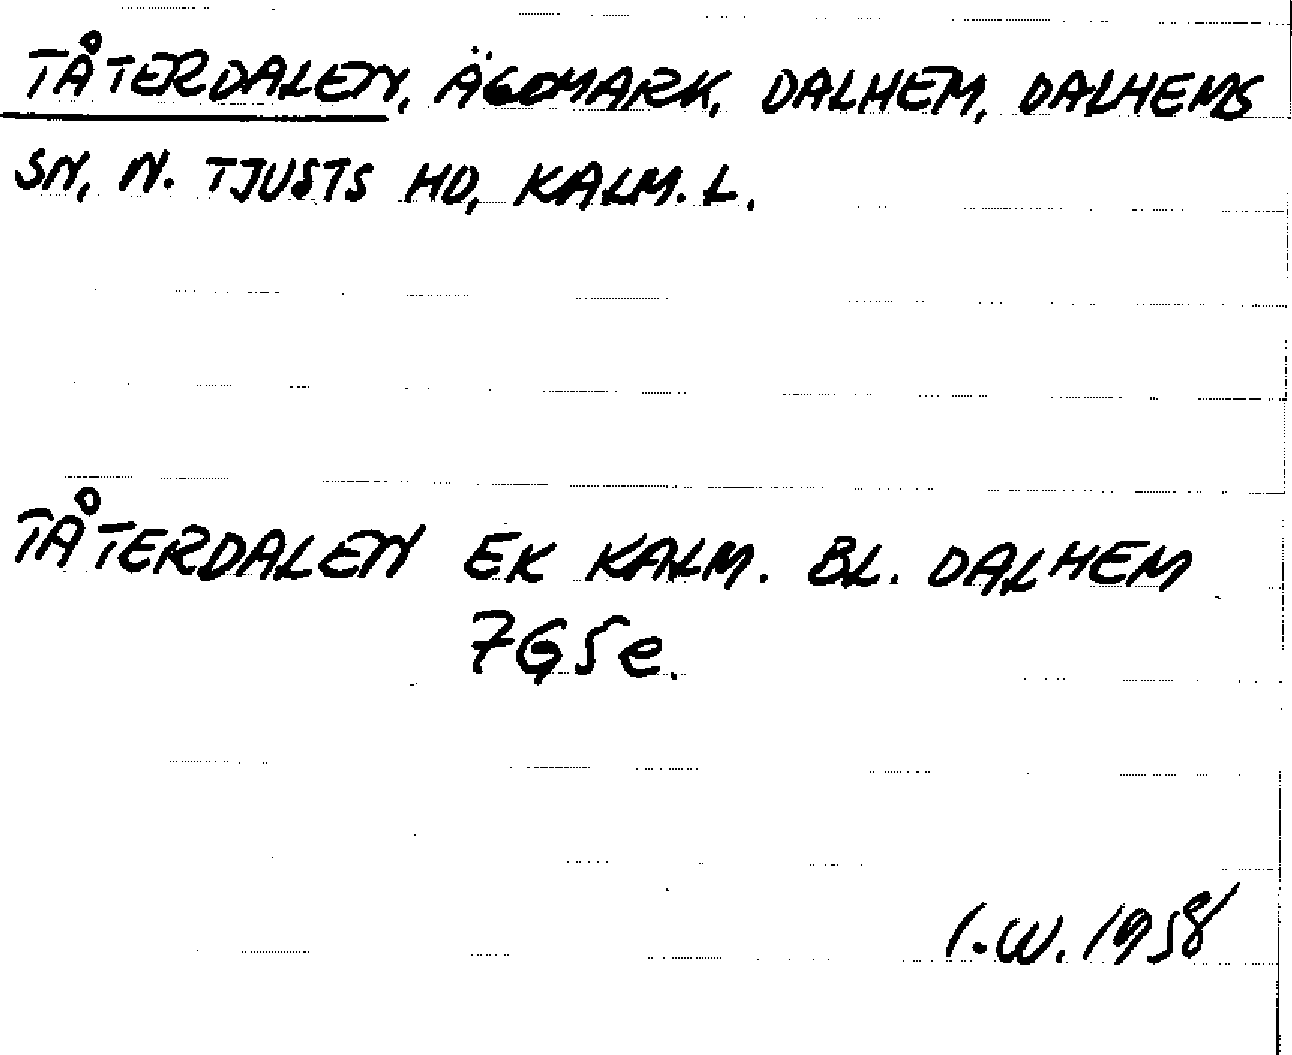 TÅTERDALEN, ÄGOMARK, DALHEM, DALHEMS
SN, N. TJUSTS HD, KALM. L.
TÅTERDALEN EK KALM. BL. DALHEM
7G5e.
I.W. 1958